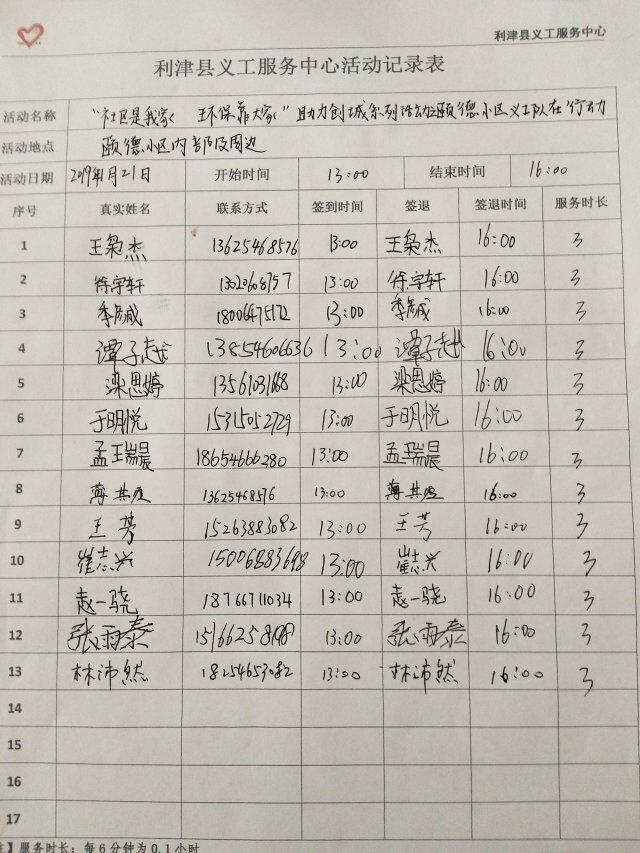 利津县义工服务中心
利津县义工服务中心活动记录表
活动名称 “社区是我家 环保靠大家” 助力创城系列活动颐德小区义工队在行动
活动地点 颐德小区内部及周边
活动日期 2019年1月21日 开始时间 13:00 结束时间 16:00
序号 真实姓名 联系方式 签到时间 签退 签退时间 服务时长
1 王枭杰 13625468576 13:00 王枭杰 16:00 3
2 徐宇轩 13:00 徐宇轩 16:00 3
3 18006475172 13:00 16:00 3
4 谭子越 13854606636 13:00 谭子越 16:00 3
5 梁思婷 13561031168 13:00 梁思婷 16:00 3
6 于明悦 15315052729 13:00 于明悦 16:00 3
7 孟瑞晨 18654666280 13:00 孟瑞晨 16:00 3
8 13625468576 13:00 16:00 3
9 王芳 15263883082 13:00 王芳 16:00 3
10 崔志兴 15006883698 13:00 崔志兴 16:00 3
11 赵一骁 18766711034 13:00 赵一骁 16:00 3
12 张雨泰 13:00 张雨泰 16:00 3
13 林沛然 18254653082 13:00 林沛然 16:00 3
14
15
16
17
注】服务时长：每6分钟为0.1小时